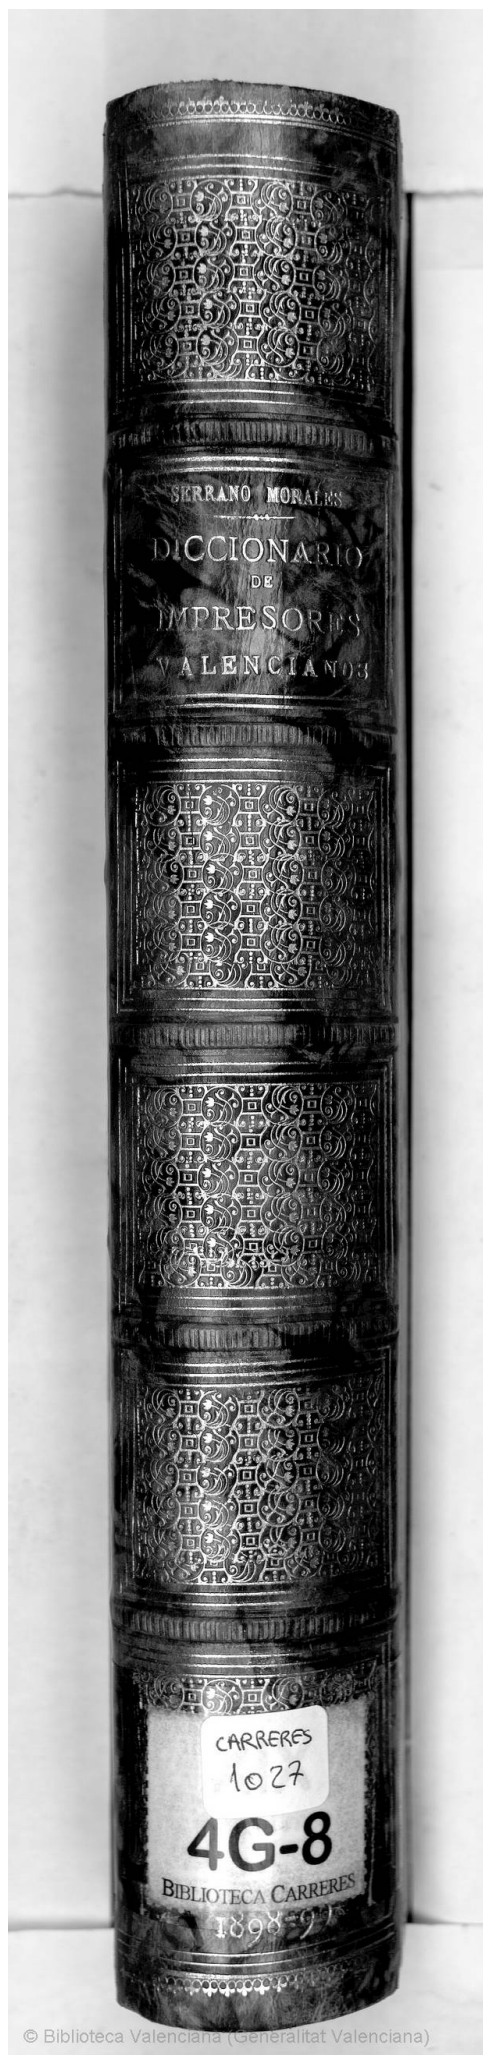 SERRANO MORALES
DICCIONARIO
DE
IMPRESORES
VALENCIANOS
CARRERES
1027
4G-8
BIBLIOTECA CARRERES
1898-99
© Biblioteca Valenciana (Generalitat Valenciana)